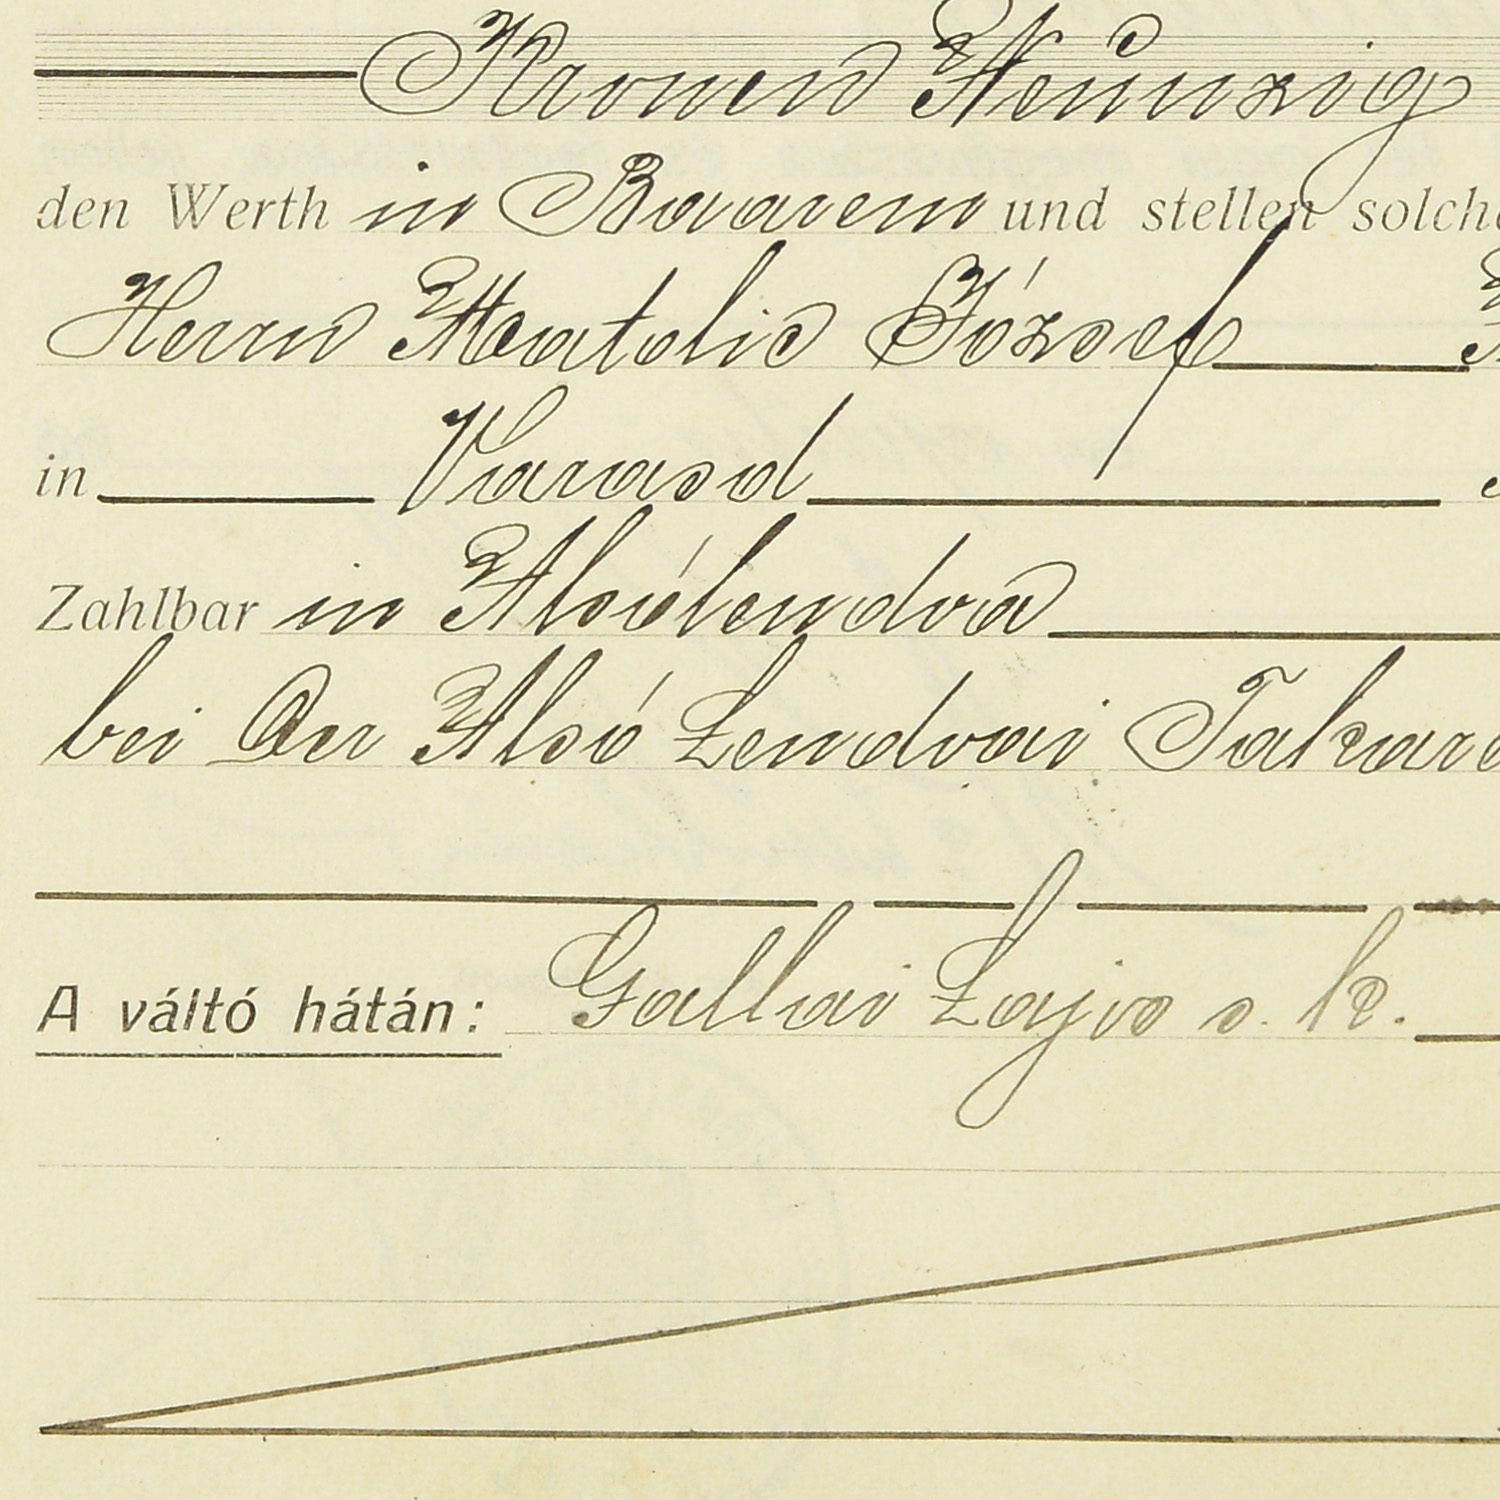 Kronen Neunzig
den Werth in Baarem und stellen solche
Herrn Matolic József
in Varasd
Zahlbar in Alsólendva
bei Der Alsó Lendvai Takaré
A váltó hátán: Gallai Lajos s. k.